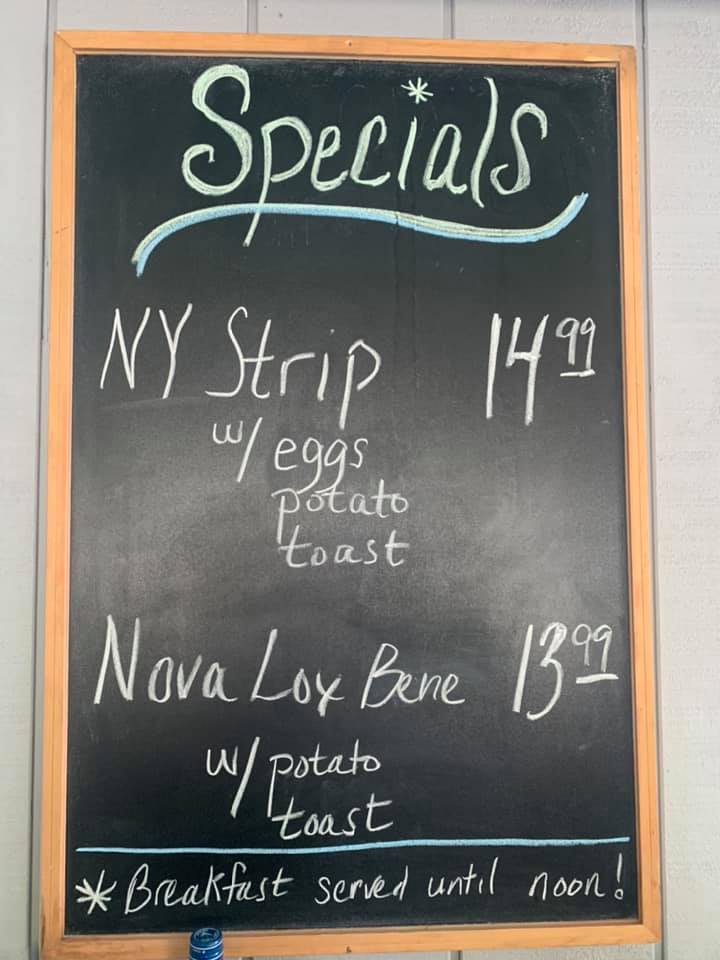 Specials
NY Strip 14.99
w/ eggs
potato
toast
Nova Lox Bene 13.99
w/ potato
toast
* Breakfast served until noon!